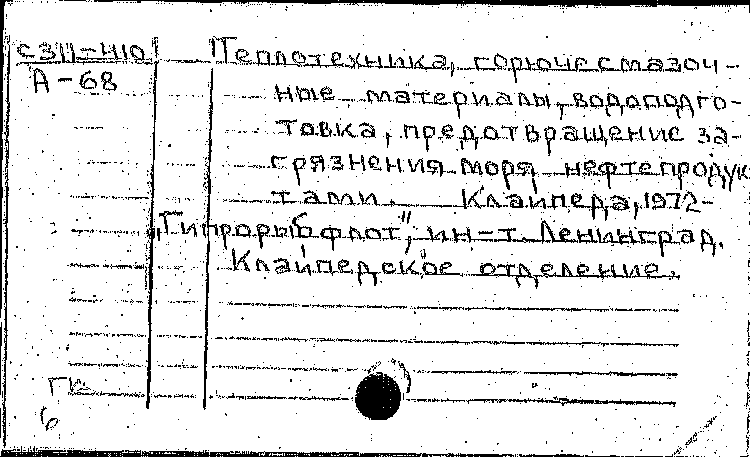 С311-410
А-68
Теплотехника, горюче смазоч-
ные материалы, водоподго-
товка, предотвращение за-
грязнения моря нефтепродук
тами. Клайпеда, 1972-
„Гипрорыбфлот", ин-т. Ленинград.
Клайпедское отделение.
6